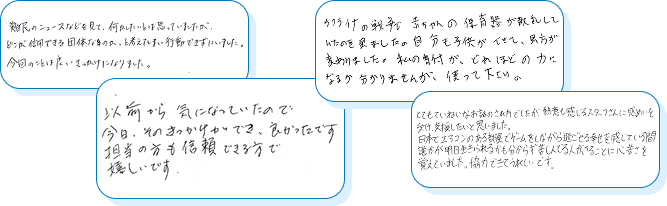 難民のニュースなどを見て、何かしたいとは思っていましたが、
どこが信用できる団体なのか、と考えてしまい行動できずにいました。
今回のことは良いきっかけになりました。
ウクライナの戦争で赤ちゃんの保育器が散乱して
いたのを見ました。自分も子供ができて、見方が
変わりました。私の寄付が、どれほどの力に
なるか分かりませんが、使って下さい。
以前から気になっていたので
今日、そのきっかけができ、良かったです
担当の方も信頼できる方で
嬉しいです。
とてもていねいなお話のされ方でしたが、熱意も感じるスタッフさんに感めいを
受け、支援したいと思いました。
日本でエアコンのある部屋でゲームをしながら過ごせる幸せを感じている間
誰かが明日生きられるかも分からず苦しんでる人がいることに心苦さを
覚えていました。協力できてうれしいです。